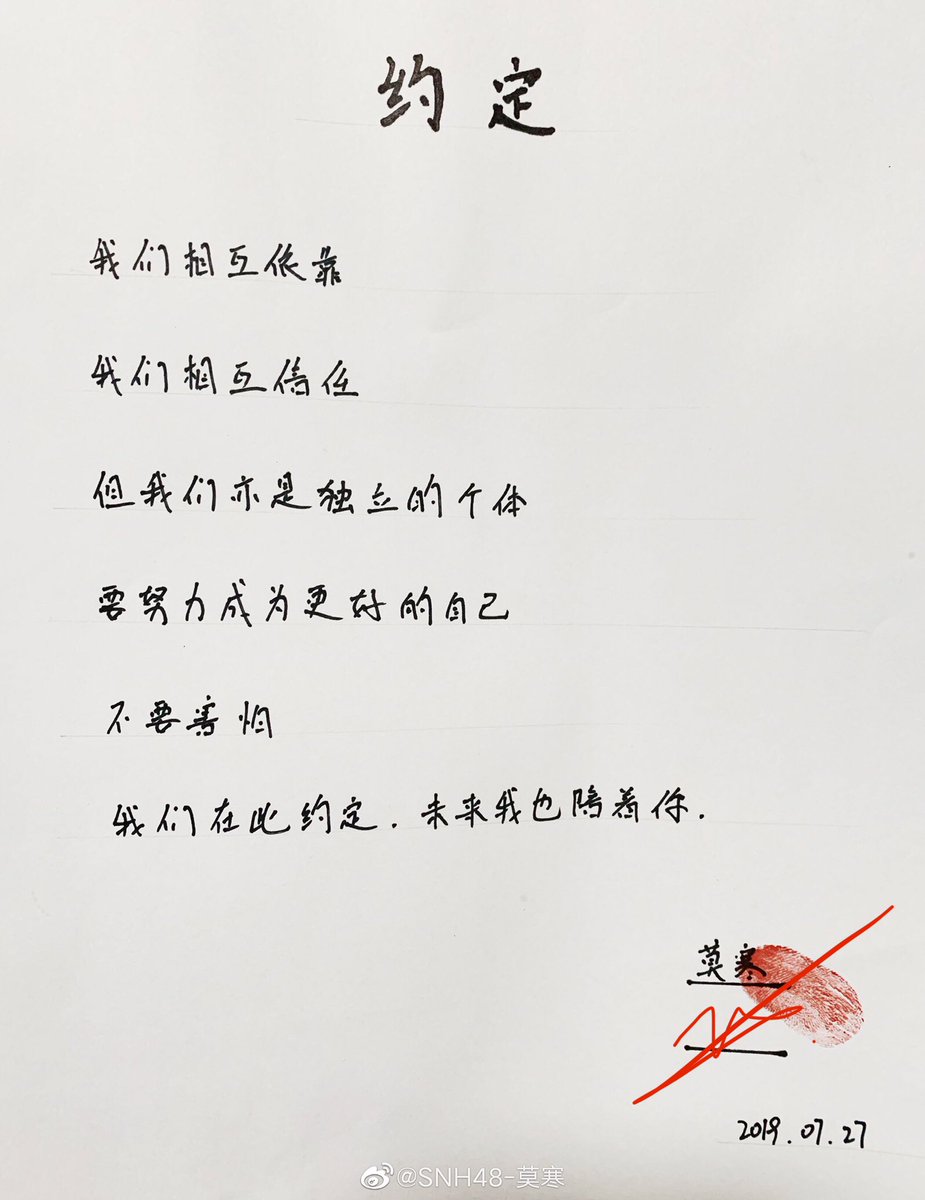 约定
我们相互依靠
我们相互信任
但我们亦是独立的个体
要努力成为更好的自己
不要害怕
我们在此约定.未来我也陪着你.
莫寒
2019.07.27
@SNH48-莫寒